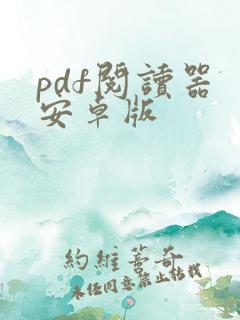 pdf閱讀器
安卓版
約維蓍奇
未任同意禁止拈载